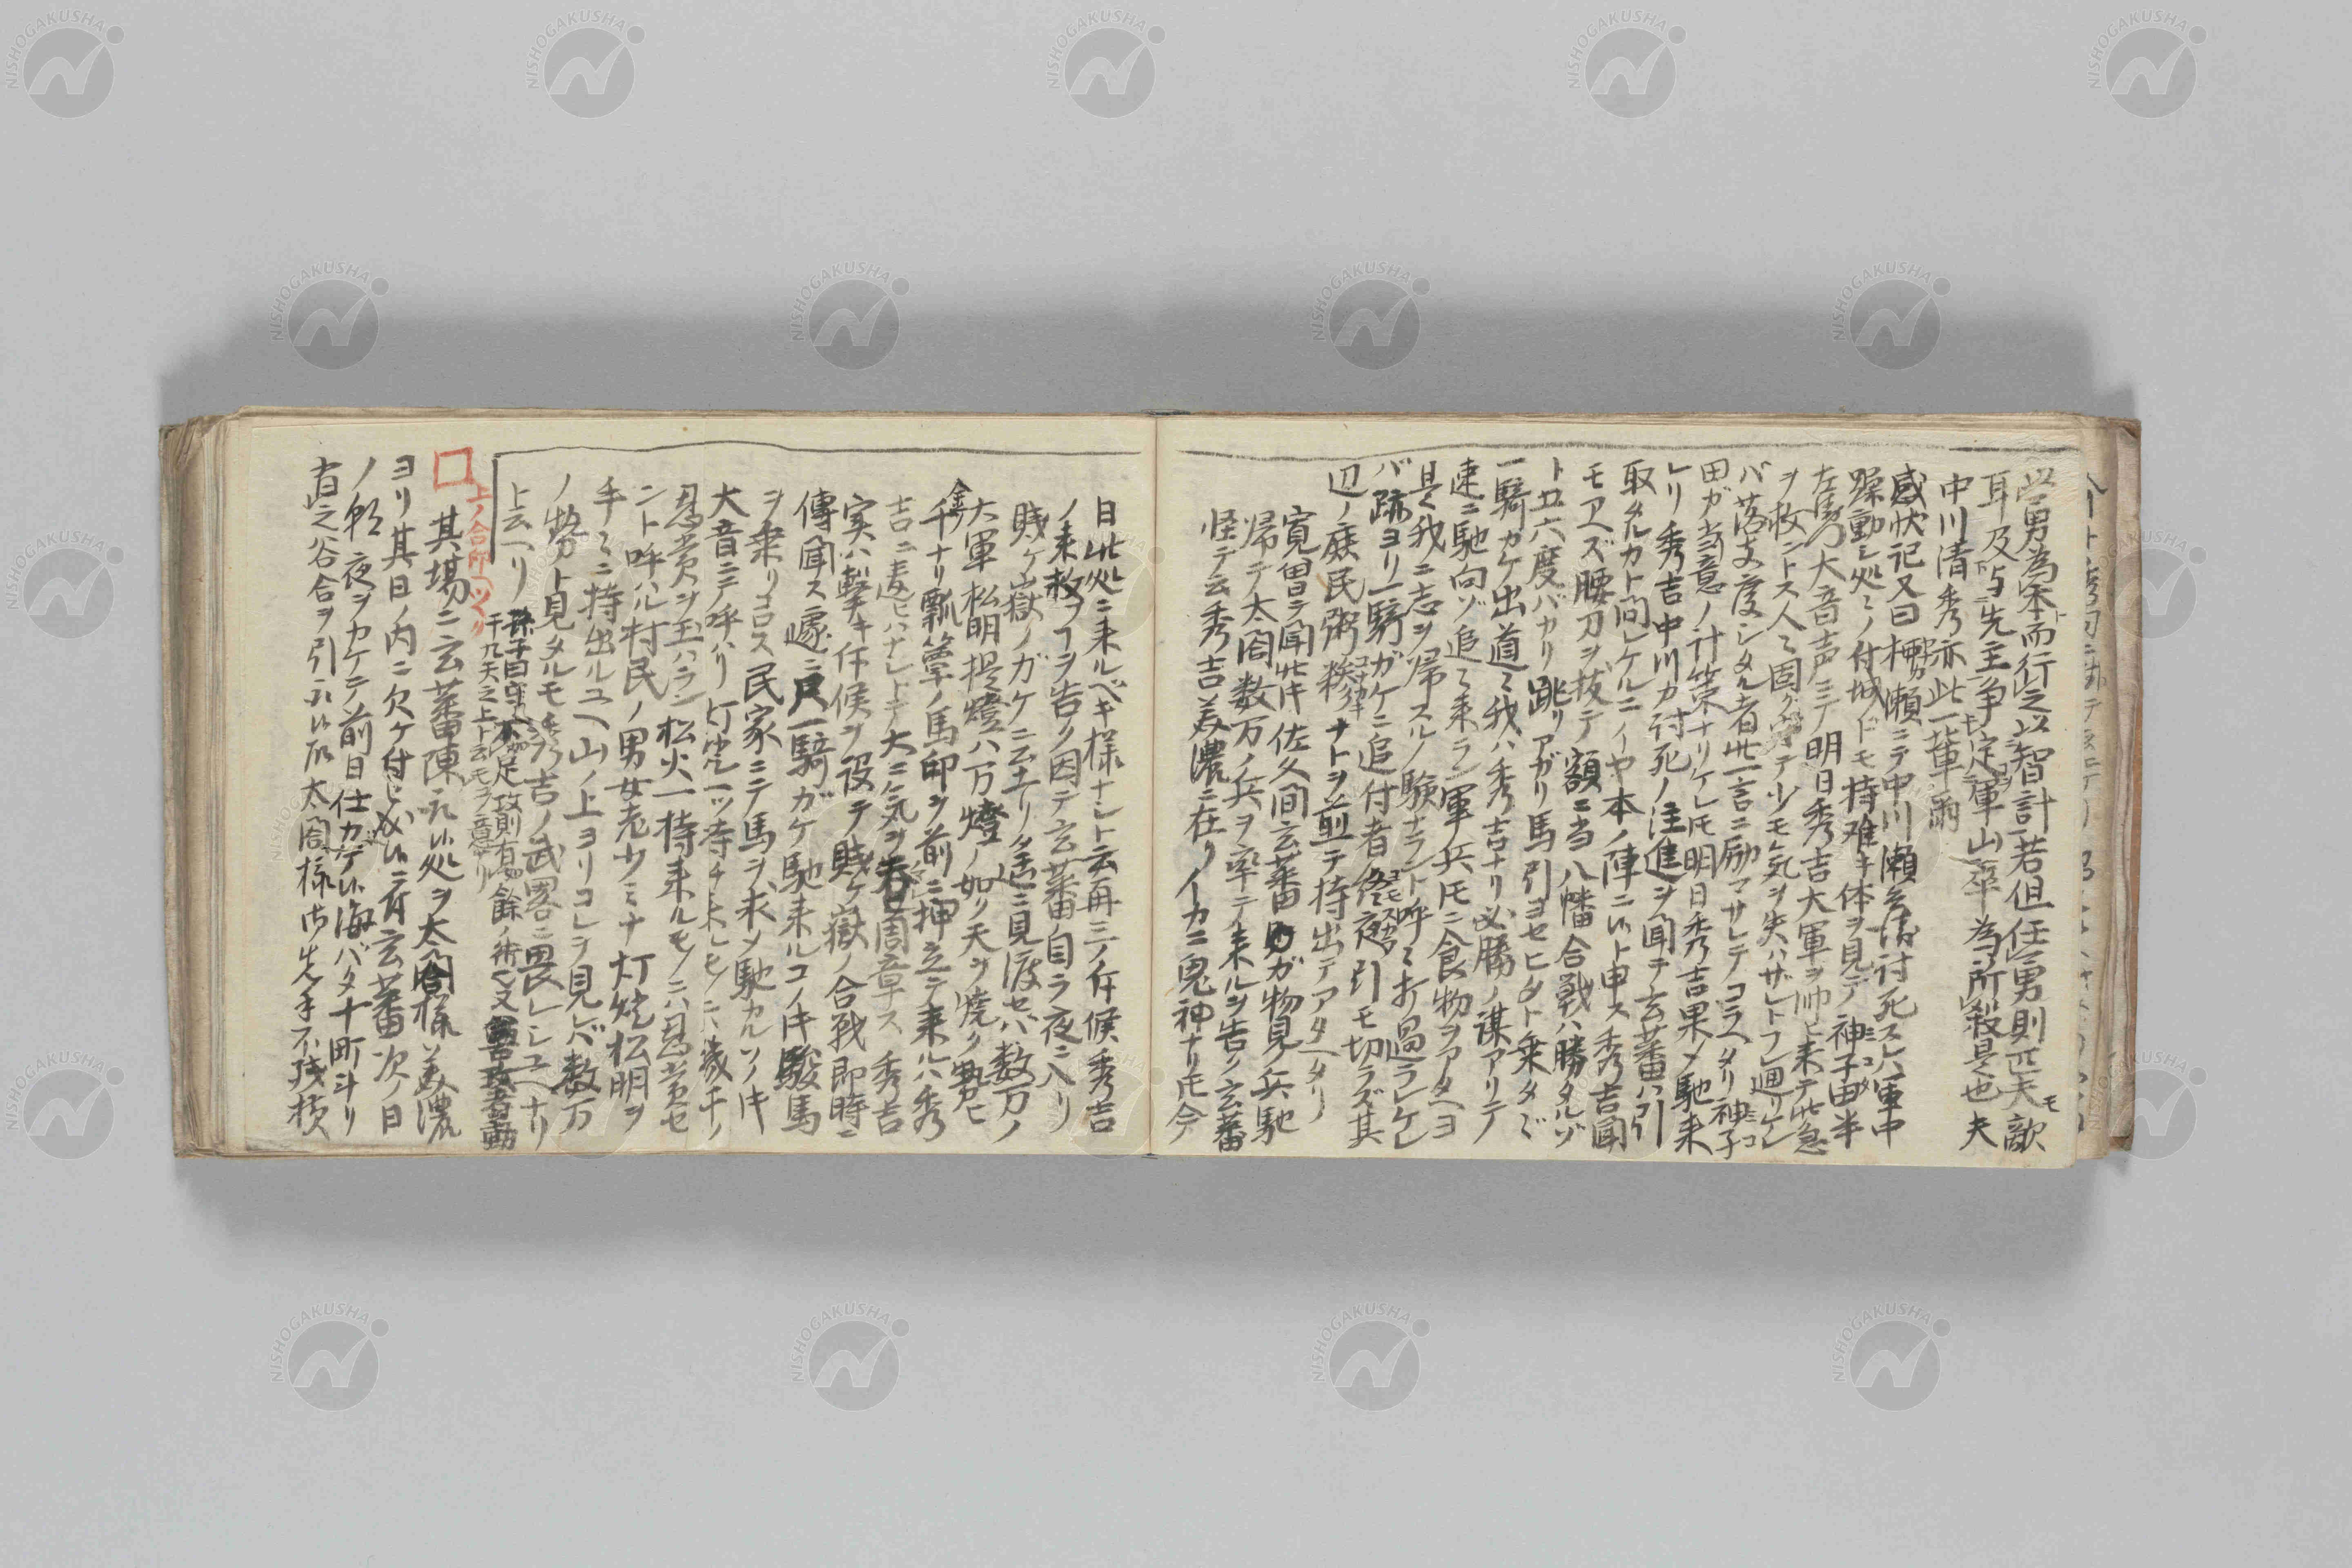 以勇為本而行之以智計若但任一勇則匹夫敵
耳及与先主争定軍山卒為所殺是也夫
中川清秀亦此一輩而
感状記又曰柳瀬ニテ中川瀬兵衛討死スレハ軍中
躁動シ処々ノ付城ドモ持难キ体ヲ見テ神子田半
左馬大音声ニテ明日秀吉大軍ヲ帥ヒ来テ此急
ヲ救ントス人々固ク守テ少モ気ヲ失ハザレトフレ廻リケレ
バ落支度シタル者此一言ニ励マサレテコラヘタリ神子
田ガ当意ノ計策ナリケレ𪜈明日秀吉果メ馳来
レリ秀吉中川カ討死ノ注進ヲ聞テ玄蕃ハ引
取タルカト問レケルニイヤ本ノ陣ニ候ト申ス秀吉聞
モアヘズ腰刀ヲ抜テ額ニ当八幡合戦ハ勝タルゾ
ト五六度バカリ跳リアガリ馬引ヨセヒタト乗タヾ
一騎カケ出道々我ハ秀吉ナリ必勝ノ謀アリテ
速ニ馳向ゾ追々来ラン軍兵𪜈ニ食物ヲアタヘヨ
是我ニ志ヲ帰スルノ験ナラント呼々打過ラレケレ
バ跡ヨリ一騎ガケニ追付者終夜引モ切ラズ其
辺ノ庶民粥糉ナトヲ煎テ持出テアタヘタリ
寛曽テ聞此時佐久間玄蕃ガ物見ノ兵馳
帰テ太閤数万ノ兵ヲ率テ来ルヲ告ク玄蕃
怪テ云秀吉美濃ニ在リイカニ鬼神ナリ𪜈今
日此処ニ来ルベキ様ナシト云再三ノ斥候秀吉
ノ来救フヲ告ク因テ玄蕃自ラ夜ニ入リ
賤ケ嶽ノガケニ上リ遙ニ見渡セハ数万ノ
大軍松明提燈ハ万燈ノ如ク天ヲ焼ク勢ヒ
金ノ千ナリ瓢箪ノ馬印ヲ前ニ押立テ来ルハ秀
吉ニ違ヒハナシトテ大ニ気ヲ呑周章ス秀吉
実ハ撃キ斥候ヲ設テ賤ケ嶽ノ合戦即時ニ
傳聞ス遽ニ只一騎ガケ馳来ルコノ時駿馬
ヲ乗リコロス民家ニテ馬ヲ求メ馳カルソノ時
大音ニテ呼ハリ灯燈一ツ持チ来レモノニハ幾千ノ
恩賞ヲ玉ハラン松火一持来ルモノニハ恩賞セ
ント呼ハル村民ノ男女老少ミナ灯燈松明ヲ
手々ニ持出ルユヘ山ノ上ヨリコレヲ見レバ数万
ノ勢ト見タルモ秀吉ノ武畧ニ畏レシユヘナリ
ト云ヘリ 孫子曰守則不足攻則有餘ノ術也又善攻者動
于九天之上ト云モヲ意ナリ
上ノ合所ヘツヾク
其場ニ玄蕃陳取候処ヲ太閤様美濃
ヨリ其日ノ内ニ欠ケ付被成候ニ付玄蕃次ノ日
ノ朝夜ヲカケテ前日仕カケ候海バタ十町斗リ
有之谷合ヲ引取候処太閤様御先手不残横